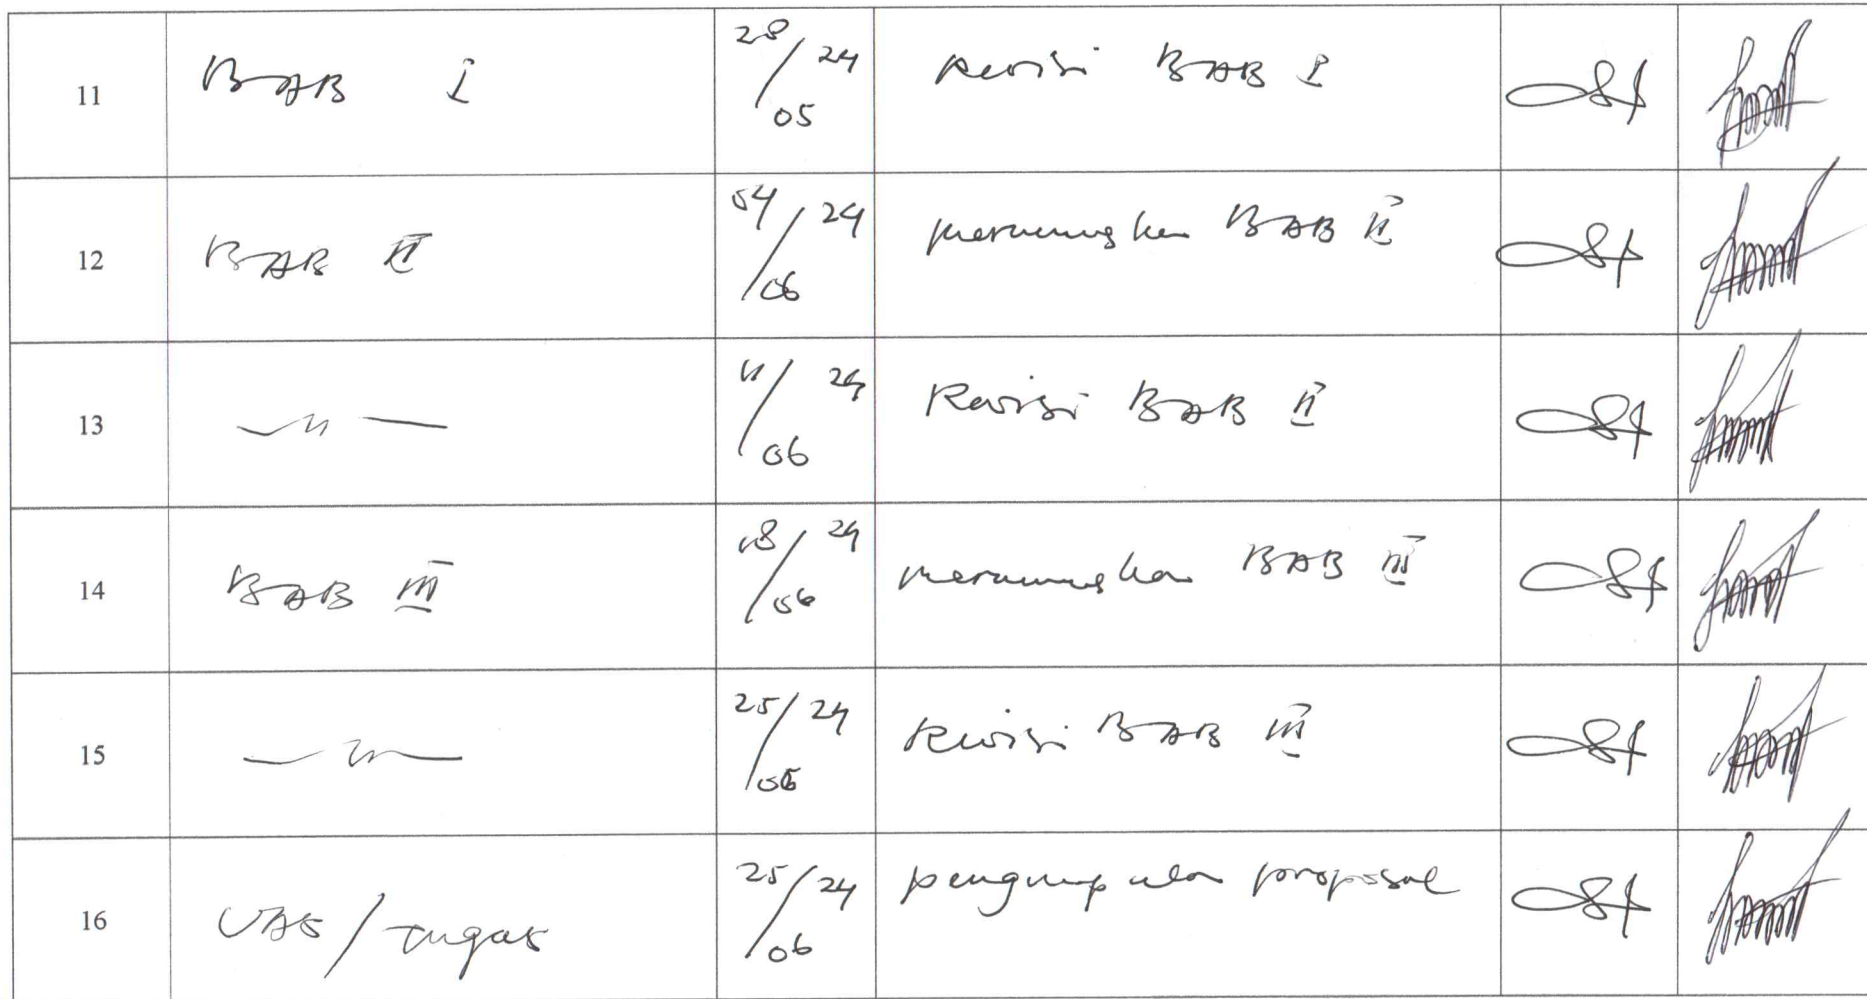 11 BAB I 28/05 24 Revisi BAB I
12 BAB II 04/06 24 merumuskan BAB II
13 — " — 11/06 24 Revisi BAB II
14 BAB III 18/06 24 merumuskan BAB III
15 — " — 25/06 24 Revisi BAB III
16 UAS / Tugas 25/06 24 pengumpulan proposal